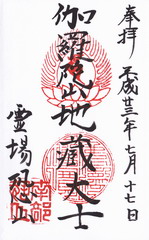 奉拝
平成廿三年七月十七日
伽羅陀山地蔵大士
霊場恐山